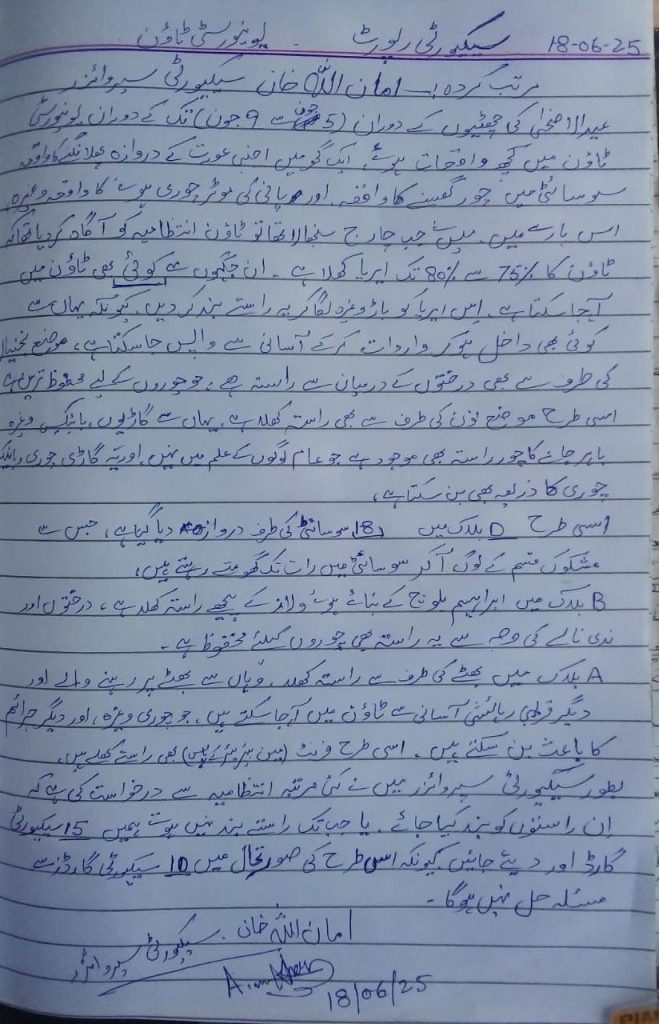 18-06-25 سیکیورٹی رپورٹ - یونیورسٹی ٹاؤن
مرتب کردہ:- امان اللہ خان سیکیورٹی سپروائزر
عیدالاضحیٰ کی چھٹیوں کے دوران (5 جون سے 9 جون) تک کے دوران یونیورسٹی
ٹاؤن میں کچھ واقعات ہوئے، ایک گھر میں اجنبی عورت کے دروازہ پھلانگنے کا واقعہ
سوسائٹی میں چور گھسنے کا واقعہ اور پانی کی موٹر چوری ہونے کا واقعہ وغیرہ
اس بارے میں، میں نے جب چارج سنبھالا تھا تو ٹاؤن انتظامیہ کو آگاہ کر دیا تھا کہ
ٹاؤن کا 75% سے 80% تک ایریا کھلا ہے۔ ان جگہوں سے کوئی بھی ٹاؤن میں
آ جا سکتا ہے۔ اس ایریا کو باڑ وغیرہ لگا کر یہ راستے بند کر دیں۔ کیونکہ یہاں سے
کوئی بھی داخل ہو کر واردات کر کے آسانی سے واپس جا سکتا ہے، موضع
کی طرف سے بھی درختوں کے درمیان سے راستہ ہے، جو چوروں کے لیے محفوظ ترین ہے
اسی طرح موضع نون کی طرف سے بھی راستہ کھلا ہے۔ یہاں سے گاڑیوں، بائیکس وغیرہ
باہر جانے کا چور راستہ بھی موجود ہے جو عام لوگوں کے علم میں نہیں اور یہ گاڑی چوری، بائیک
چوری کا ذریعہ بھی بن سکتا ہے،
اسی طرح D بلاک میں 18 سوسائٹی کی طرف دروازہ دیا گیا ہے، جس سے
مشکوک قسم کے لوگ آ کر سوسائٹی میں رات تک گھومتے رہتے ہیں،
B بلاک میں ابراہیم بلوچ کے بنائے ہوئے ولاز کے پیچھے راستہ کھلا ہے، درختوں اور
ندی نالے کی وجہ سے یہ راستہ بھی چوروں کیلئے محفوظ ہے۔
A بلاک میں بھٹے کی طرف سے راستہ کھلا، وہاں سے بھٹے پر رہنے والے اور
دیگر قریبی رہائشی آسانی سے ٹاؤن میں آ جا سکتے ہیں، جو چوری وغیرہ، اور دیگر جرائم
کا باعث بن سکتے ہیں۔ اسی طرح فرنٹ (مین کے پاس) بھی راستے کھلے ہیں،
بطور سیکیورٹی سپروائزر میں نے کئی مرتبہ انتظامیہ سے درخواست کی ہے کہ
ان راستوں کو بند کیا جائے۔ یا جب تک راستے بند نہیں ہوتے ہمیں 15 سیکیورٹی
گارڈ اور دیئے جائیں کیونکہ اس طرح کی صورتحال میں 10 سیکیورٹی گارڈز سے
مسئلہ حل نہیں ہوگا۔
امان اللہ خان۔ سیکیورٹی سپروائزر
18/06/25